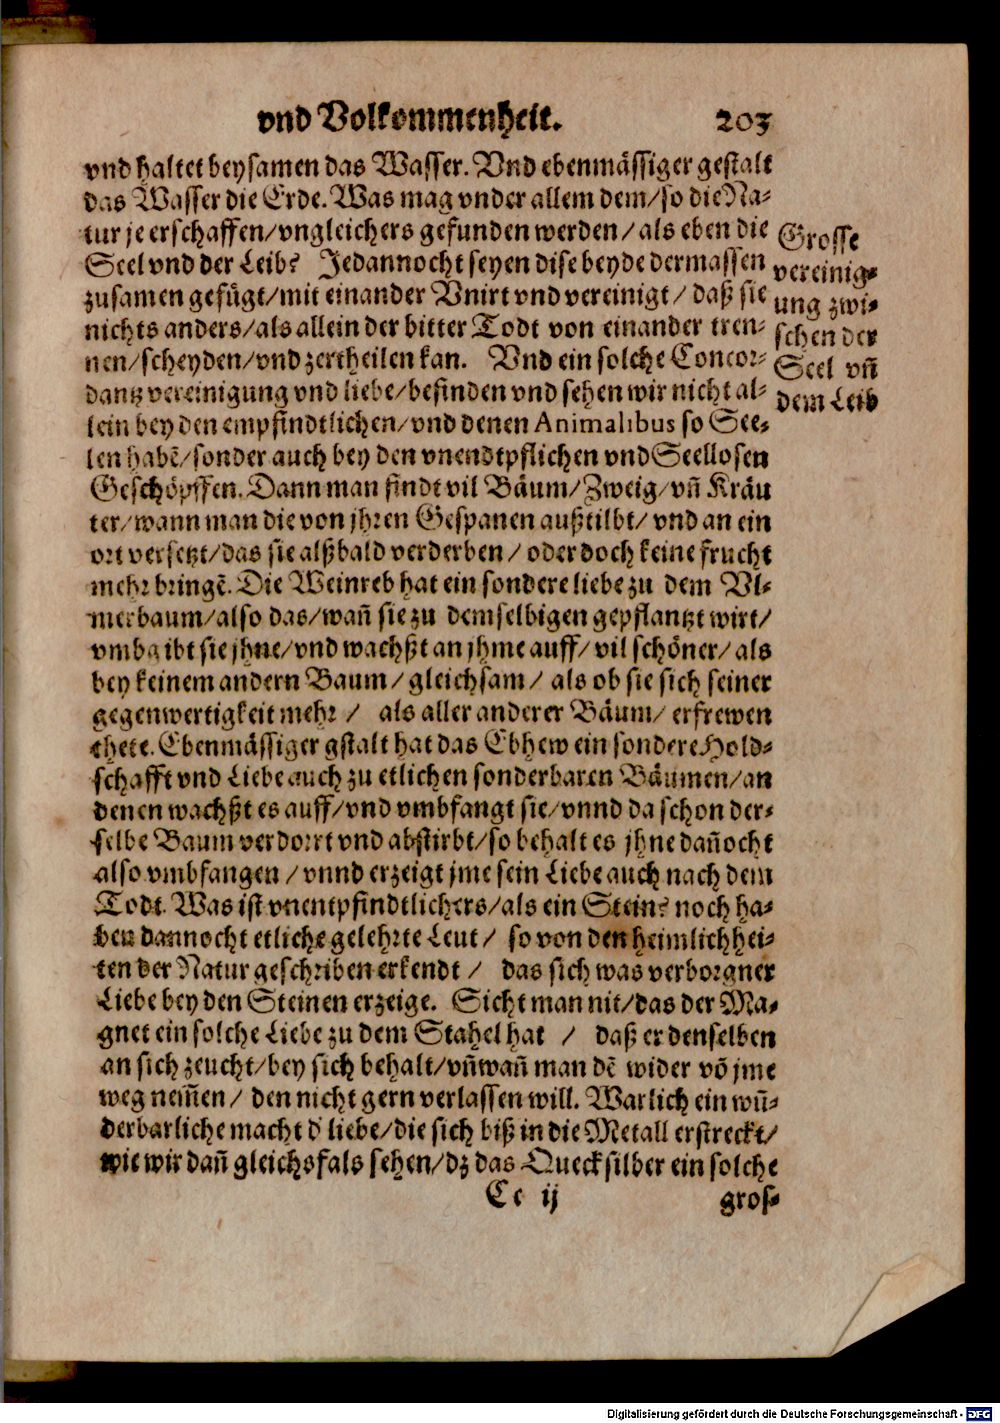 vnd Volkommenheit. 203
vnd haltet beysamen das Wasser. Vnd ebenmässiger gestalt
das Wasser die Erde. Was mag vnder allem dem/so die Na-
tur je erschaffen/vngleichers gefunden werden/als eben die
Seel vnd der Leib? Jedannocht seyen dise beyde dermassen
zusamen gefügt/mit einander Vnirt vnd vereinigt/ daß sie
nichts anders/als allein der bitter Todt von einander tren-
nen/scheyden/vnd zertheilen kan. Vnd ein solche Concor-
dantz vereinigung vnd liebe/befinden vnd sehen wir nicht al-
lein bey den empfindtlichen/vnd denen Animalibus so See-
len habē/sonder auch bey den vnendtpflichen vnd Seellosen
Geschöpffen. Dann man findt vil Bäum/Zweig/vñ Kräu
ter/wann man die von jhren Gespanen außtilbt/ vnd an ein
ort versetzt/das sie alßbald verderben/ oder doch keine frucht
mehr bringē. Die Weinreb hat ein sondere liebe zu dem Vl-
merbaum/also das/wañ sie zu demselbigen gepflantzt wirt/
vmbgibt sie jhne/vnd wachßt an jhme auff/vil schöner/als
bey keinem andern Baum/gleichsam/ als ob sie sich seiner
gegenwertigkeit mehr/ als aller anderer Bäum/ erfrewen
thete. Ebenmässiger gstalt hat das Ebhew ein sondere Hold-
schafft vnd Liebe auch zu etlichen sonderbaren Bäumen/an
denen wachßt es auff/vnd vmbfangt sie/vnnd da schon der-
selbe Baum verdorrt vnd abstirbt/so behalt es jhne dañocht
also vmbfangen/vnnd erzeigt jme sein Liebe auch nach dem
Todt. Was ist vnentpfindtlichers/als ein Stein? noch ha-
ben dannocht etliche gelehrte Leut/ so von den heimlichhei-
ten der Natur geschriben erkendt/ das sich was verborgner
Liebe bey den Steinen erzeige. Sicht man nit/das der Ma-
gnet ein solche Liebe zu dem Stahel hat / daß er denselben
an sich zeucht/bey sich behalt/vñ wañ man dē wider vō jme
weg nem̃en/ den nicht gern verlassen will. Warlich ein wū-
derbarliche macht d' liebe/die sich biß in die Metall erstreckt/
wie wir dañ gleichsfals sehen/dz das Quecksilber ein solche
Cc ij gros-
Grosse
vereinig-
ung zwi-
schen der
Seel vñ
dem Leib
Digitalisierung gefördert durch die Deutsche Forschungsgemeinschaft - DFG